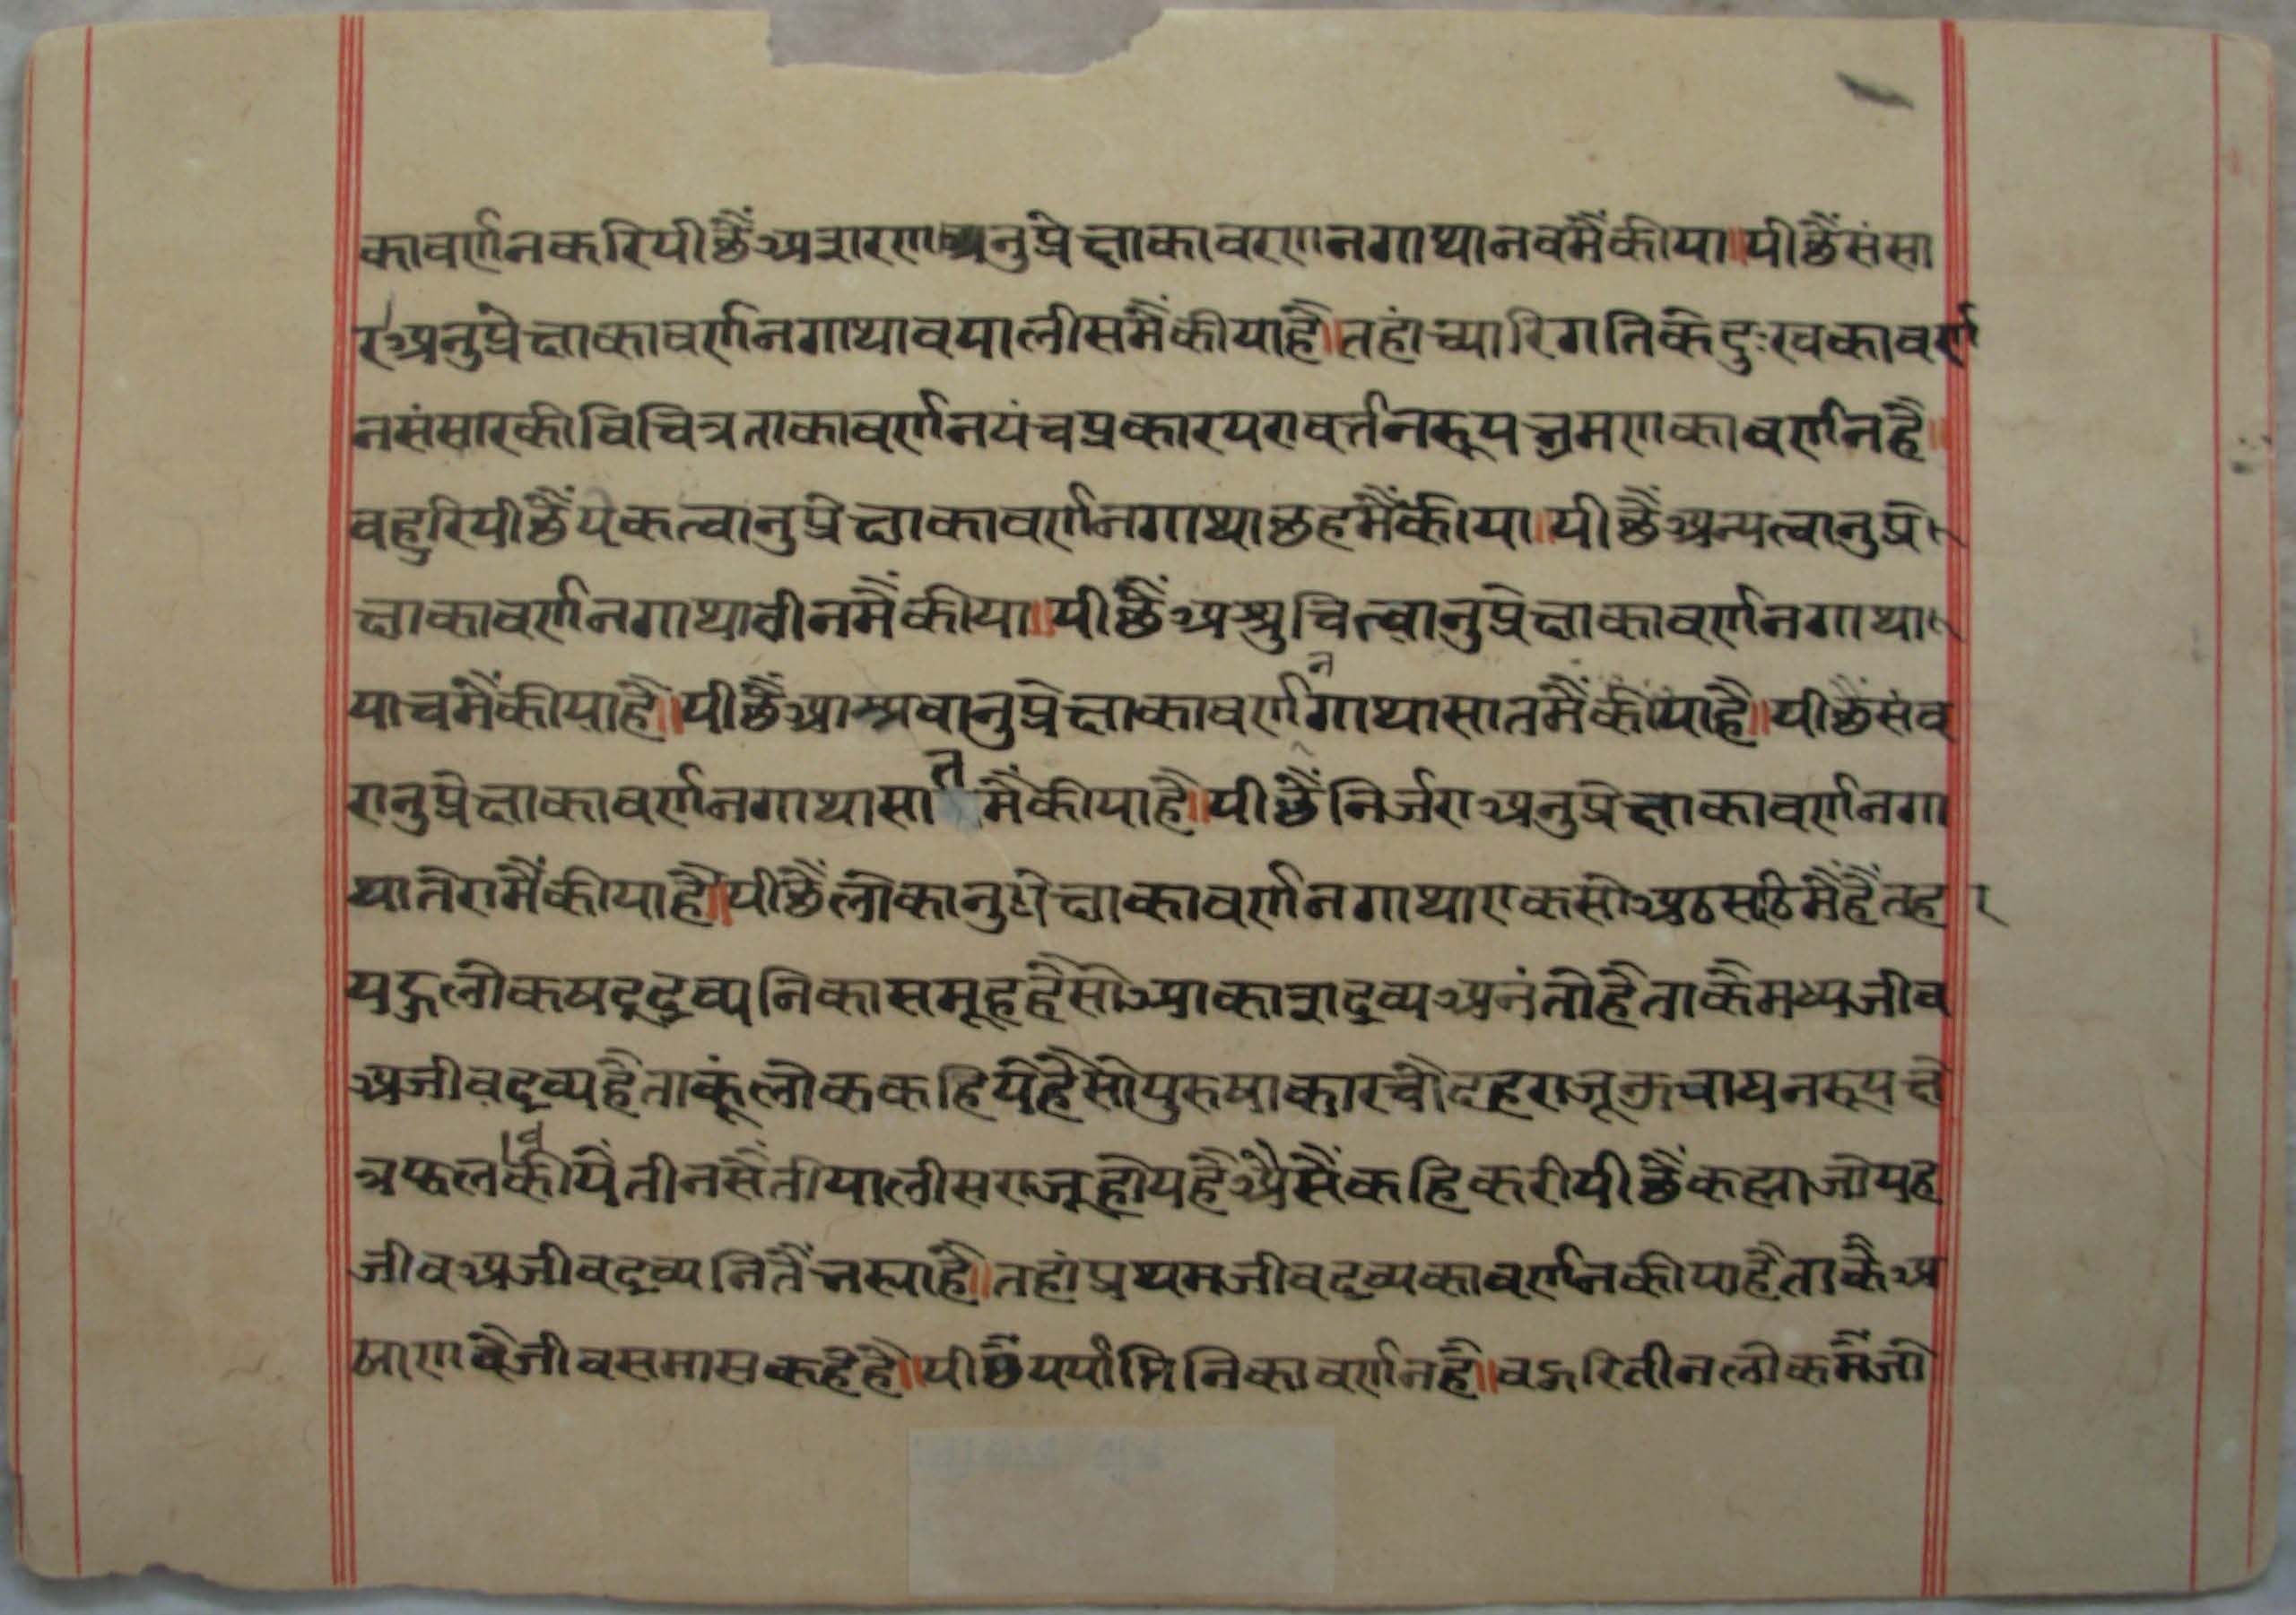 कावर्णनकरिपीछैंअशरणअनुप्रेक्षाकावरणनगाथानवमैंकीया॥पीछैंसंसा
रअनुप्रेक्षाकावर्णनगाथावयालीसमैंकीयाहै॥तहांच्यारिगतिकेदुःखकावर्ण
नसंसारकीविचित्रताकावर्णनपंचप्रकारपरावर्त्तनरूपभ्रमणकावर्णनहै॥
वहुरिपीछैंयेकत्वानुप्रेक्षाकावर्णनगाथाछहमैंकीया॥पीछैंअन्यत्वानुप्रे
क्षाकावर्णनगाथातीनमैंकीया॥पीछैंअश्रुचित्वानुप्रेक्षाकावर्णनगाथा
पाचमैंकीयाहै॥पीछैंआस्रवानुप्रेक्षाकावर्णनगाथासातमैंकीयाहै॥पीछैंसंव
रानुप्रेक्षाकावर्णनगाथासातमैंकीयाहै॥पीछैंनिर्जराअनुप्रेक्षाकावर्णनगा
थातेरामैंकीयाहै॥पीछैंलोकानुप्रेक्षाकावर्णनगाथाएकसोअठसठिमैंहैंतहा
यहुलोकषद्द्रव्यनिकासमूहहैसोआकाशद्रव्यअनंतोहैताकैमध्यजीव
अजीवद्रव्यहैताकूंलोककहियेहैसोपुरुषाकारचौदहराजूऊचाघनरूपक्षे
त्रफलकीयैंतीनसैंतीयालीसराजूहोयहैअैसैंकहिकरीपीछैंकह्याजोयह
जीवअजीवद्रव्यनितैंभस्याहै॥तहांप्रथमजीवद्रव्यकावर्णनकीयाहैताकैअ
ठाणवैजीवसमासकहेहै॥पीछैंपर्याप्तिनिकावर्णनहै॥वहुरितीनलोकमैंजो